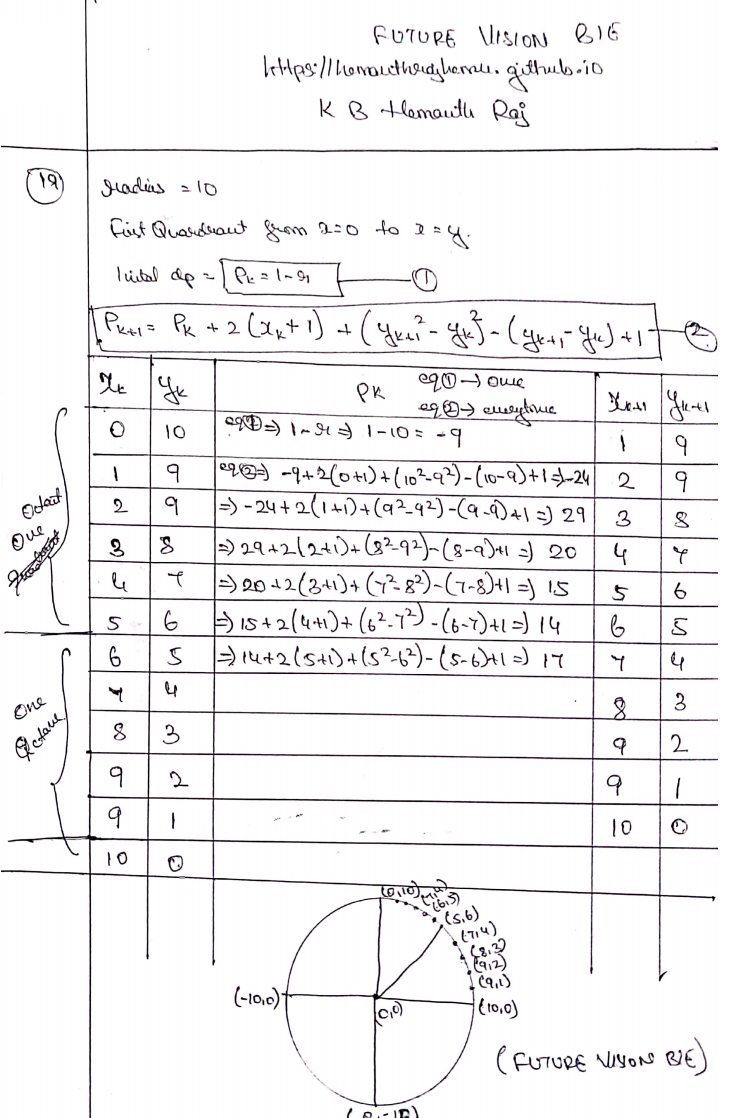 FUTURE VISION BIE
https://hemanthrajhemu.github.io
K B Hemanth Raj
19
radius = 10
First Quardraut from x=0 to x=y.
Initial dp = Pk = 1-r ①
Pk+1 = Pk + 2(xk+1) + (yk+1² - yk²) - (yk+1 - yk) + 1 ②
xk yk Pk eq① → one eq② → everytime xk+1 yk+1
0 10 eq① ⇒ 1-r ⇒ 1-10 = -9 1 9
1 9 eq② ⇒ -9+2(0+1)+(10²-9²)-(10-9)+1 ⇒ -24 2 9
2 9 ⇒ -24+2(1+1)+(9²-9²)-(9-9)+1 ⇒ 29 3 8
3 8 ⇒ 29+2(2+1)+(8²-9²)-(8-9)+1 ⇒ 20 4 7
4 7 ⇒ 20+2(3+1)+(7²-8²)-(7-8)+1 ⇒ 15 5 6
5 6 ⇒ 15+2(4+1)+(6²-7²)-(6-7)+1 ⇒ 14 6 5
6 5 ⇒ 14+2(5+1)+(5²-6²)-(5-6)+1 ⇒ 17 7 4
7 4 8 3
8 3 9 2
9 2 9 1
9 1 10 0
10 0
Octant
One
One
Octave
(0,10) (7,4)
(6,5)
(5,6)
(7,4)
(8,3)
(9,2)
(9,1)
(-10,0) (0,0) (10,0)
(FUTURE VISION BIE)
(0,-10)